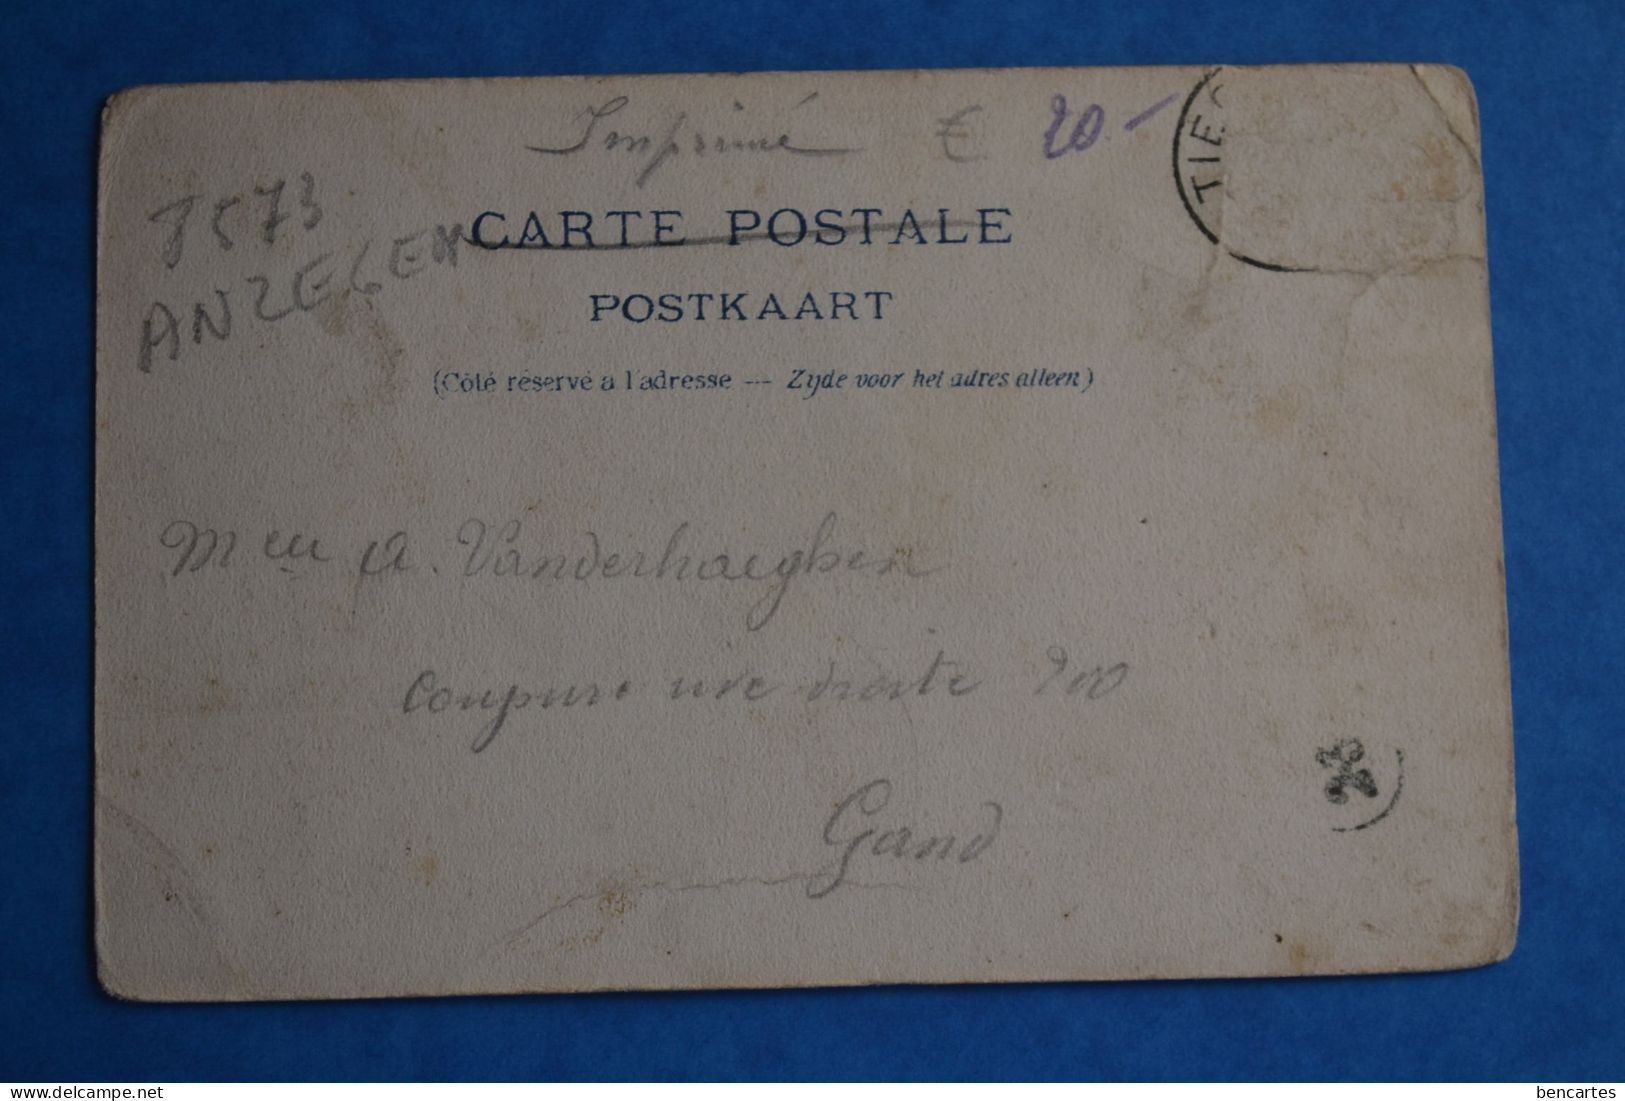 Imprimé € 20.-
TIEG
8573
ANZEGEM
CARTE POSTALE
POSTKAART
(Côté réservé a l'adresse --- Zyde voor het adres alleen)
Meu A. Vanderhaeghen
Coupure rive droite
Gand
bencartes